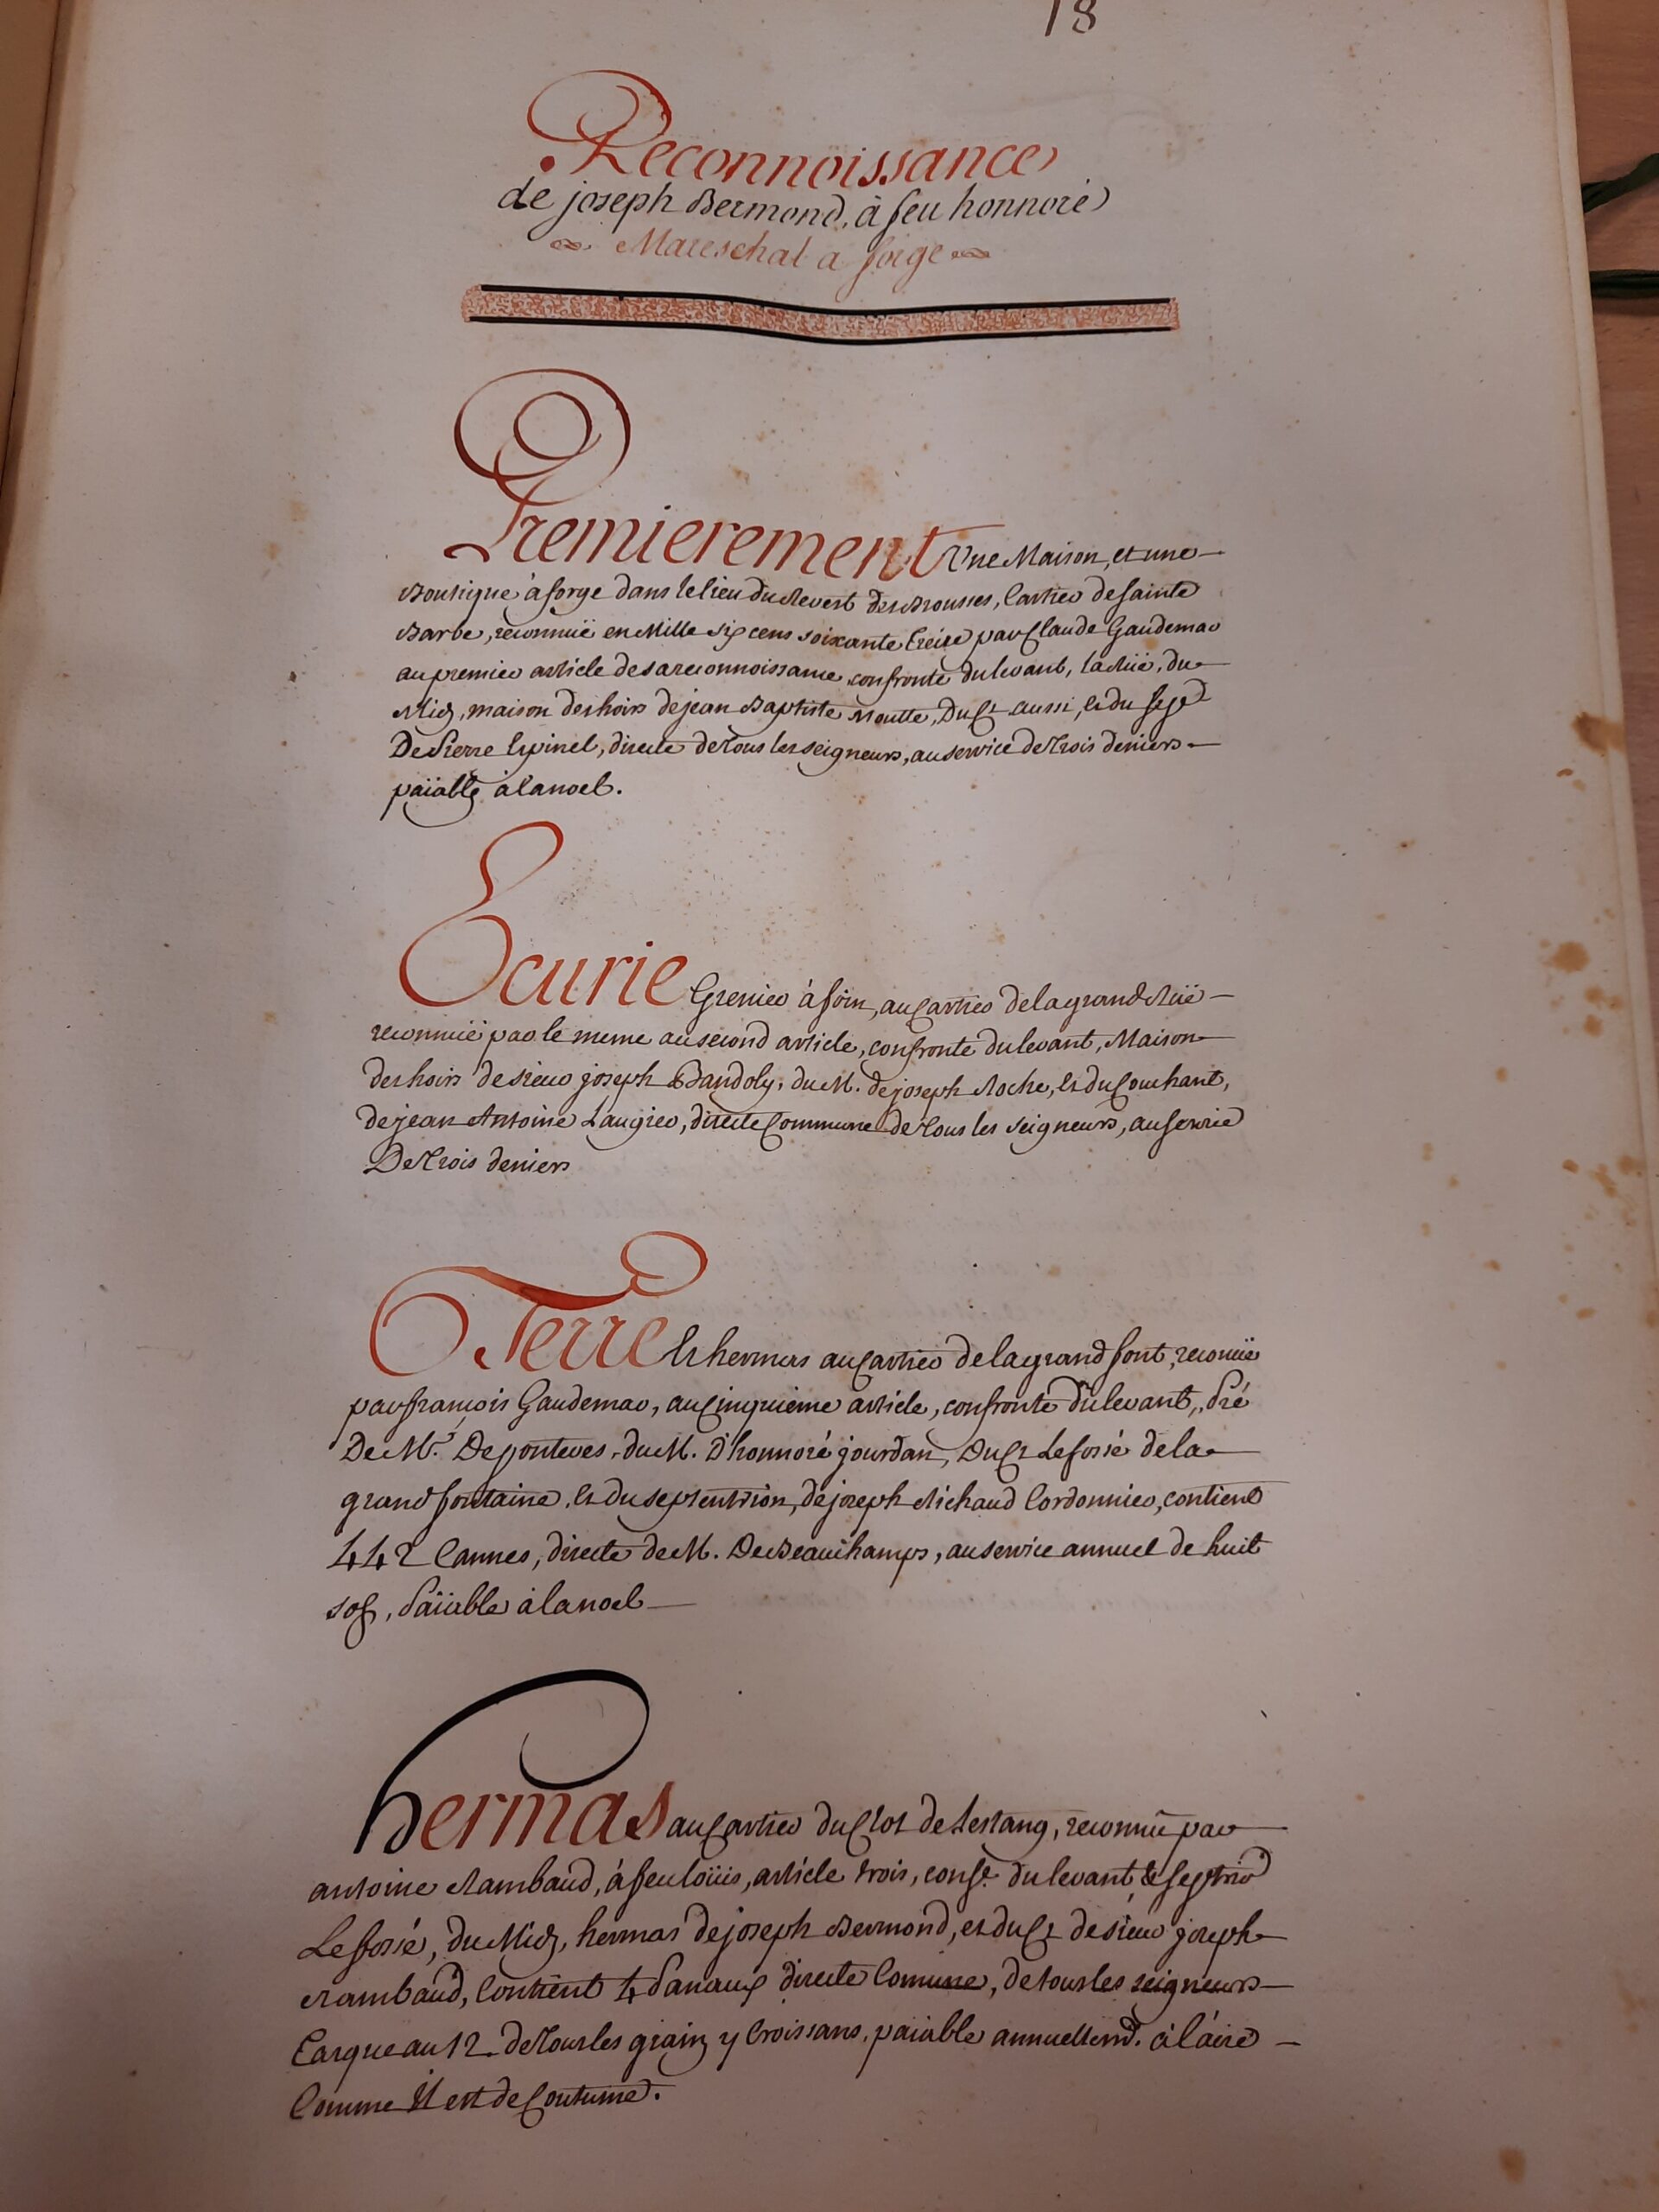 18
Reconnoissance
de joseph Bermond, à feu honnoré
Mareschal a forge
Premierement Une Maison, et une
Boutique à forge dans le lieu du Revest des Brousses, Cartier de Sainte
Barbe, reconnuë en Mille Six cens soixante treize par Claude Gaudemar
au premier article de sa reconnoissance, confronte du levant, la Ruë, du
Midy, maison des hoirs de jean Baptiste Moutte, du Ct aussi, et du
De Pierre Espinel, directe de tous les seigneurs, au service de trois deniers
païable à la noel.
Ecurie Grenier à foin, au Cartier de la grand Ruë
reconnuë par le meme au second article, confronte du levant, Maison
des hoirs de sieur joseph Bandoly, du M. de joseph Roche, et du Couchant,
de jean Antoine Laugier, directe Commune de tous les seigneurs, au service
De trois deniers
Terre et hermas au Cartier de la grand font, reconuë
par françois Gaudemar, au Cinquieme article, confronte du levant, Pré
De Mr. De ponteves, du M. D'honnoré jourdan, Du Ct Le fossé de la
grand fontaine, et du septentrion, de joseph Richaud Cordonnier, contient
442 Cannes, directe de M. De Beauchamps, au service annuel de huit
sols, Païable à la noel
hermas au Cartier du Clot de Lestang, reconnu par
antoine Rambaud, à feu loüis, article trois, conf.e du levant & Septrion
Le fossé, du Midy, hermas de joseph Bermond, et du Ct de sieur joseph
Rambaud, Contient 4 Panaux directe Comune, de tous les seigneurs
Tasque au 12 de tous les grains y Croissans, païable annuellemt. à l'aire
Comme Il est de Coutume.